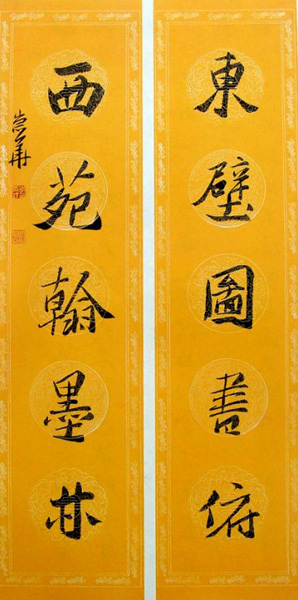 東壁圖書俯
西苑翰墨林